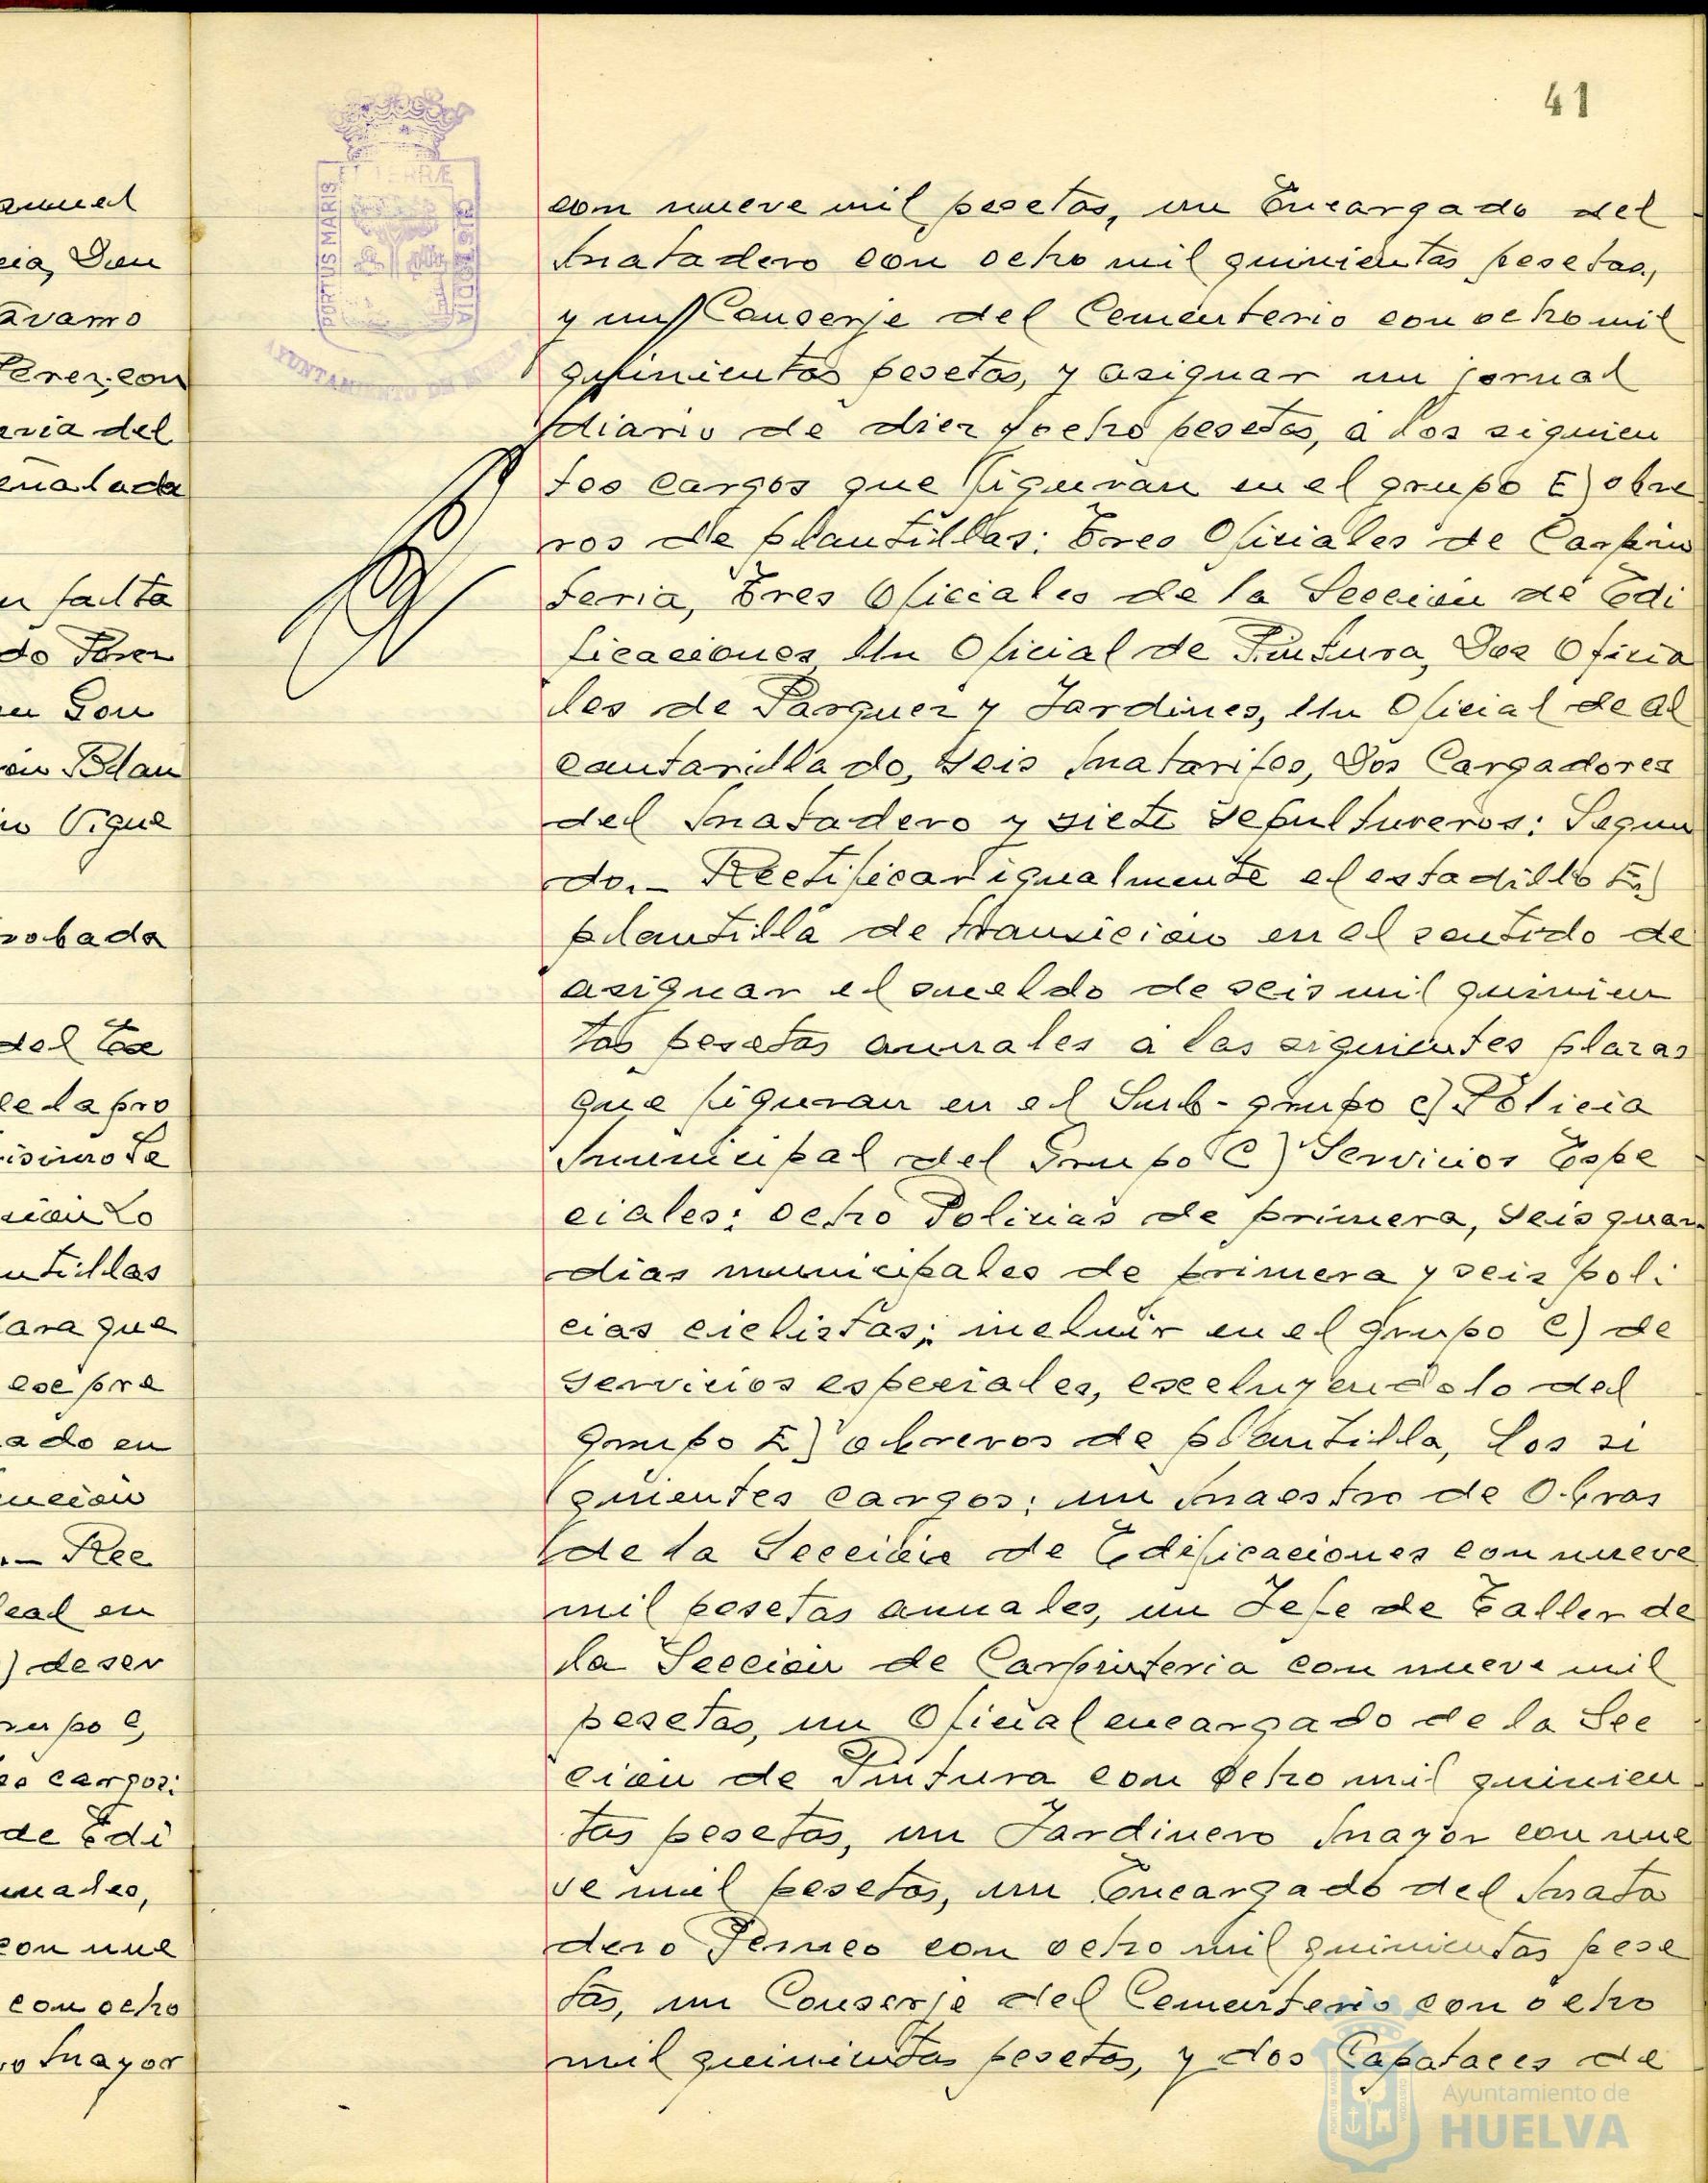 41
PORTUS MARIS
ET TERRÆ
CUSTODIA
AYUNTAMIENTO DE HUELVA
anuel
cia, Don
avamo
Perez, con
aria del
eñalada
n falta
do Perez
Gon
Blan
Vigue
robada
del Exc
de la pro
isimo Se
Lo
ntillas
para que
ese pre
ado en
ución
.- Rec
leal en
) de ser
rupo C,
os cargos:
de Edi
nuales,
con nue
con ocho
ro Mayor
con nueve mil pesetas, un Encargado del
Matadero con ocho mil quinientas pesetas,
y un Conserje del Cementerio con ocho mil
quinientas pesetas, y asignar un jornal
diario de diez y ocho pesetas, a los siguien
tes cargos que figuran en el grupo E) obre
ros de plantillas: Tres Oficiales de Carpin
teria, Tres Oficiales de la Sección de Edi
ficaciones, Un Oficial de Pintura, Dos Oficia
les de Parques y Jardines, Un Oficial de al
cantarillado, Seis Matarifes, Dos Cargadores
del Matadero y siete Sepultureros: Segun
do.- Rectificar igualmente el estadillo E)
plantilla de transición en el sentido de
asignar el sueldo de seis mil quinien
tas pesetas anuales a las siguientes plazas
que figuran en el Sub-grupo c) Policia
Municipal del Grupo C) Servicios Espe
ciales: ocho Policias de primera, seis guar
dias municipales de primera y seis poli
cias ciclistas; incluir en el grupo C) de
Servicios especiales, excluyendolo del
Grupo E) obreros de plantilla, los si
guientes cargos: un Maestro de Obras
de la Sección de Edificaciones con nueve
mil pesetas anuales, un Jefe de Taller de
la Sección de Carpinteria con nueve mil
pesetas, un Oficial encargado de la Sec
ción de Pintura con ocho mil quinien
tas pesetas, un Jardinero Mayor con nue
ve mil pesetas, un Encargado del Mata
dero Perneo con ocho mil quinientas pese
tas, un Conserje del Cementerio con ocho
mil quinientas pesetas, y dos Capataces de
Ayuntamiento de
HUELVA